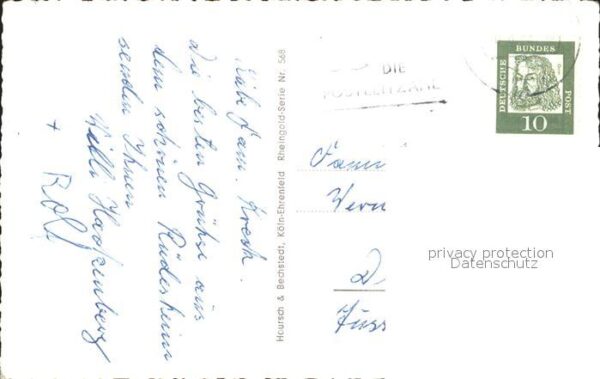 Liebe Fam. Kresh.
Die besten Grüße aus
dem schönen Rüdesheim
senden Ihnen
Willi
+ Rolf
Haursch & Bechstedt, Köln-Ehrenfeld Rheingold-Serie Nr. 568
DIE
POSTLEITZAHL
DEUTSCHE
BUNDES
POST
10
Fam
Wern
D
privacy protection
Datenschutz